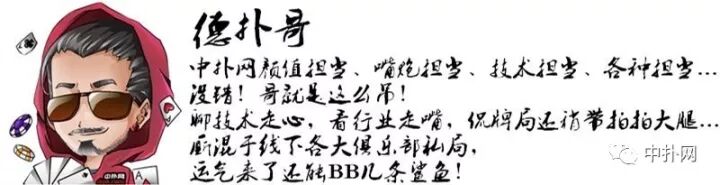 德扑哥
中扑网颜值担当、嘴炮担当、技术担当、各种担当...
没错！哥就是这么吊！
聊技术走心，看行业走嘴，侃牌局还稍带拍拍大腿...
厮混于线下各大俱乐部私局，
运气来了还能BB几条鲨鱼！
中扑网
A
中扑网